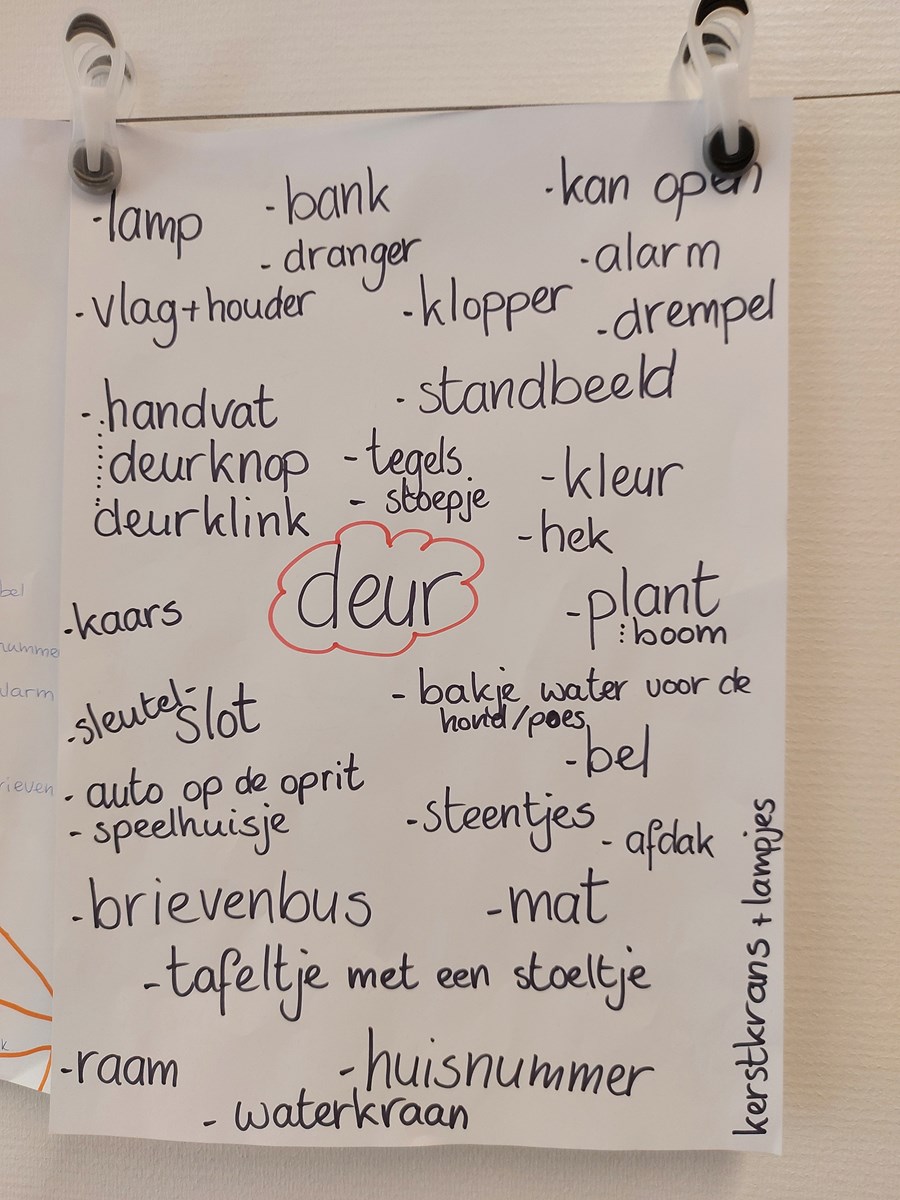 -lamp
-bank
-kan open
-dranger
-alarm
-vlag+houder
-klopper
-drempel
-handvat
-standbeeld
deurknop
-tegels
-kleur
deurklink
- stoepje
-hek
deur
-plant
:boom
-kaars
- bakje water voor de
hond/poes
-sleutel-slot
-bel
- auto op de oprit
- speelhuisje
-steentjes
- afdak
-brievenbus
-mat
-tafeltje met een stoeltje
-raam
-huisnummer
- waterkraan
kerstkrans + lampjes
bel
numme
larm
rieven
k